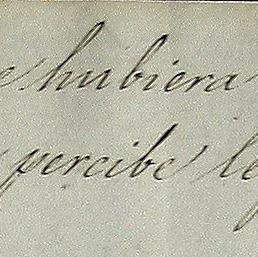 e hubiera
percibe le